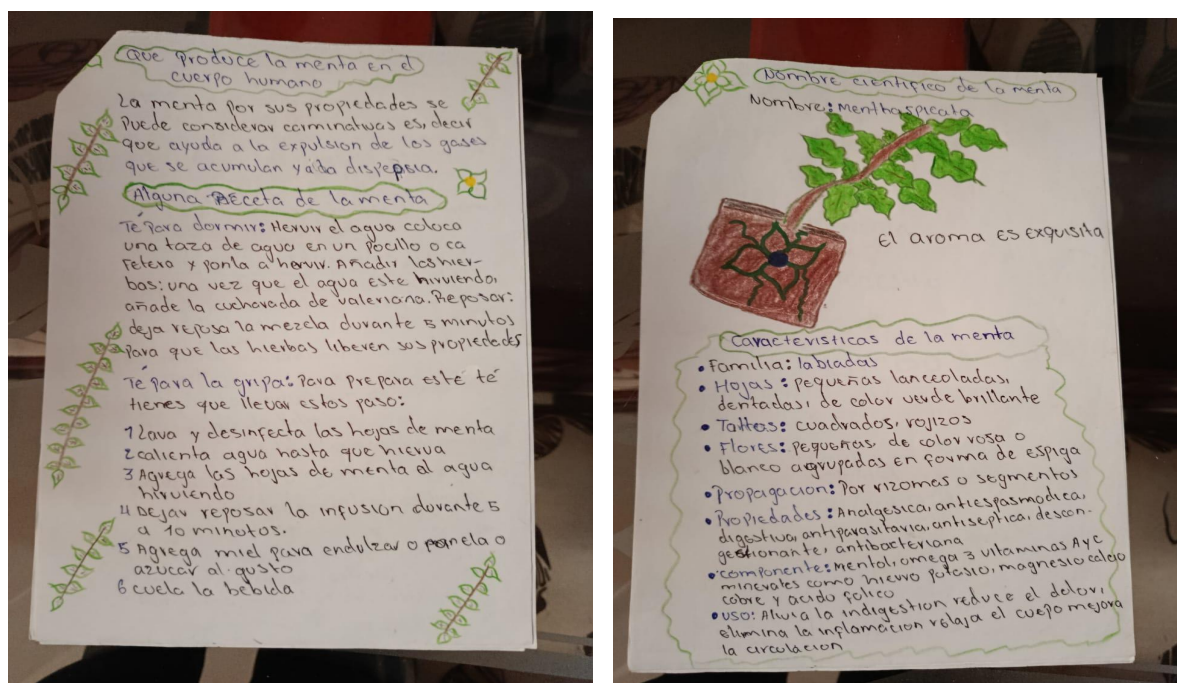 Que produce la menta en el
cuerpo humano
La menta por sus propiedades se
Puede considerar carminativas es, decir
que ayuda a la expulsion de los gases
que se acumulan y a la dispepsia.
Alguna Receta de la menta
Té Para dormir: Hervir el agua coloca
una taza de agua en un pocillo o ca
fetero y ponla a hervir. Añadir las hier-
bas: una vez que el agua este hirviendo,
añade la cucharada de valeriana. Reposar:
deja reposa la mezcla durante 5 minutos
Para que las hierbas liberen sus propiedades
Té para la gripa: Para Prepara esté té
tienes que llevar estos paso:
1 Lava y desinfecta las hojas de menta
2 calienta agua hasta que hierva
3 Agrega las hojas de menta al agua
hirviendo
4 Dejar reposar la infusion durante 5
a 10 minutos.
5 Agrega miel para endulzar o panela o
azucar al gusto
6 cuela la bebida
Nombre cientifico de la menta
Nombre: Mentha spicata
El aroma es exquisita
Caracteristicas de la menta
• Familia: labiadas
• Hojas: pequeñas lanceoladas,
dentadas, de color verde brillante
• Tallos: cuadrados, rojizos
• Flores: pequeñas, de color rosa o
blanco agrupadas en forma de espiga
• Propagacion: Por rizomas o segmentos
• Propiedades: Analgesica, antiespasmodica,
digestiva, antiparasitaria, antiseptica, descon-
gestionante, antibacteriana
• componente: mentol, omega 3 vitaminas A y C
minerales como hierro potasio, magnesio calcio
cobre y acido folico
• uso: Alivia la indigestion reduce el dolor,
elimina la inflamacion relaja el cuepo mejora
la circulacion